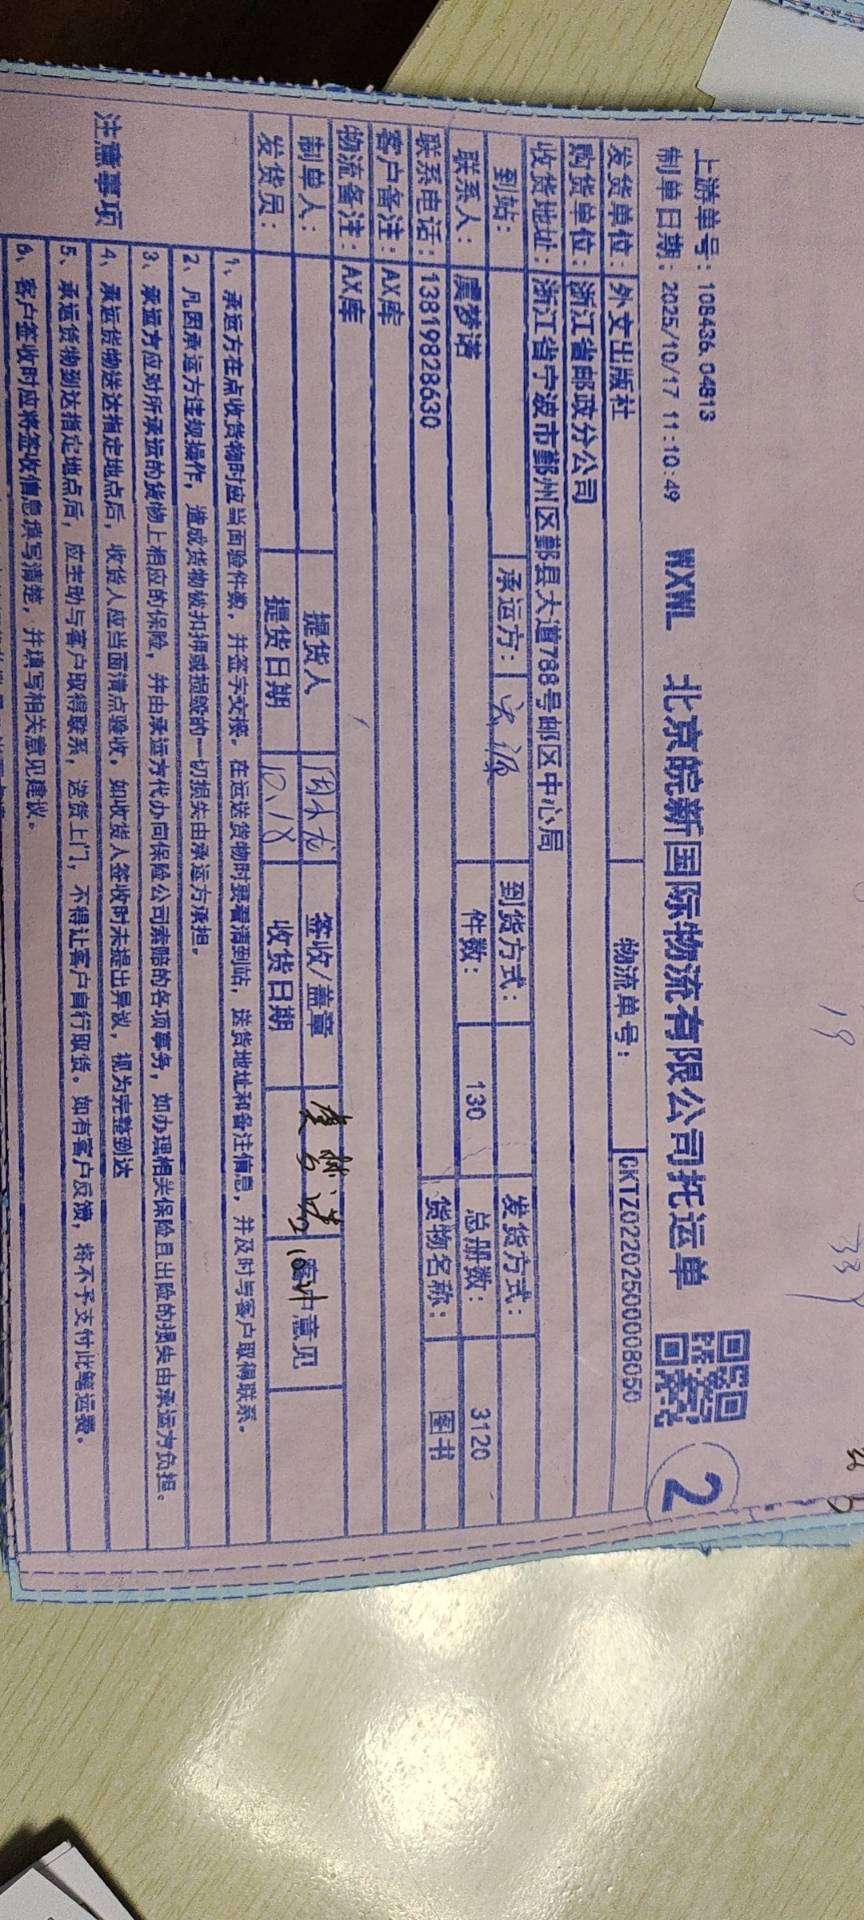 上游单号：108436.04813
制单日期：2025/10/17 11:10:49 WXWL 北京皖新国际物流有限公司托运单 2
发货单位：外文出版社 物流单号：CKTZ0220250008050
购货单位：浙江省邮政分公司
收货地址：浙江省宁波市鄞州区鄞县大道788号邮区中心局
到站： 承运方： 到货方式： 发货方式：
联系人：虞梦诺 件数：130 总册数：3120
联系电话：13819828630 货物名称：图书
客户备注：AX库
物流备注：AX库
制单人： 提货人 签收/盖章 虞梦诺 客户意见
发货员： 提货日期 10.18 收货日期
注意事项
1、承运方在点收货物时应当面验件数，并签字交接。在运送货物时要看清到站，送货地址和备注信息，并及时与客户取得联系。
2、凡因承运方违规操作，造成货物被扣押或损毁的一切损失由承运方承担。
3、承运方应对所承运的货物上相应的保险，并由承运方代办向保险公司索赔的各项事务，如办理相关保险且出险的损失由承运方负担。
4、承运货物送达指定地点后，收货人应当面清点验收。如收货人签收时未提出异议，视为完整到达
5、承运货物到达指定地点后，应主动与客户取得联系，送货上门，不得让客户自行取货。如有客户反馈，将不予支付此笔运费。
6、客户签收时应将签收信息填写清楚，并填写相关意见建议。
19